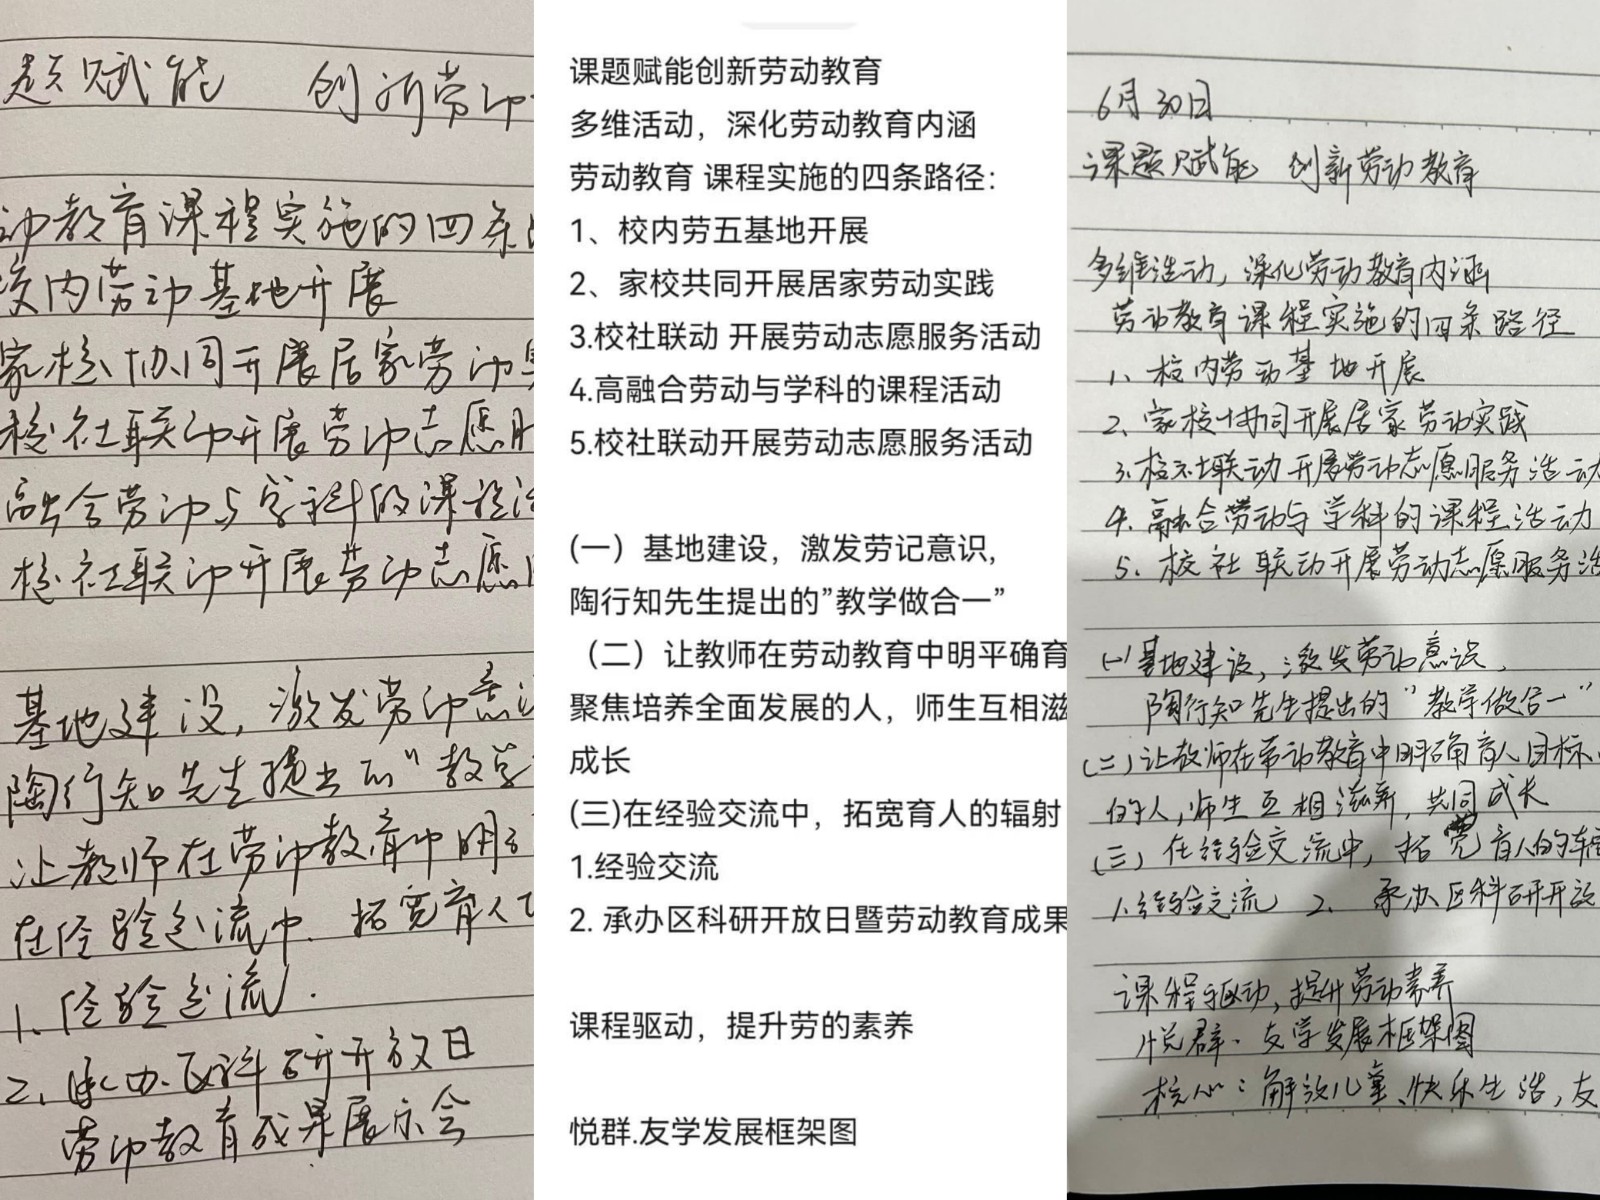 题赋能 创新劳动
动教育课程实施的四条
校内劳动基地开展
家校协同开展居家劳动
校社联动开展劳动志愿
融合劳动与学科的课程活
校社联动开展劳动志愿
基地建设,激发劳动意识
陶行知先生提出的"教学
让教师在劳动教育中明
在经验交流中.拓宽育人
1、经验交流.
2、承办区科研开放日
劳动教育成果展示会
课题赋能创新劳动教育
多维活动，深化劳动教育内涵
劳动教育 课程实施的四条路径：
1、校内劳五基地开展
2、家校共同开展居家劳动实践
3.校社联动 开展劳动志愿服务活动
4.高融合劳动与学科的课程活动
5.校社联动开展劳动志愿服务活动
(一）基地建设，激发劳记意识,
陶行知先生提出的”教学做合一”
（二）让教师在劳动教育中明平确育
聚焦培养全面发展的人，师生互相滋
成长
(三)在经验交流中，拓宽育人的辐射
1.经验交流
2. 承办区科研开放日暨劳动教育成果
课程驱动，提升劳的素养
悦群.友学发展框架图
6月30日
课题赋能 创新劳动教育
多维活动,深化劳动教育内涵
劳动教育课程实施的四条路径
1、校内劳动基地开展
2、家校协同开展居家劳动实践
3.校社联动开展劳动志愿服务活动
4.融合劳动与学科的课程活动
5.校社联动开展劳动志愿服务活
(一)基地建设,激发劳动意识,
陶行知先生提出的"教学做合一"
(二)让教师在劳动教育中明确育人目标
的人,师生互相滋新,共同成长
(三)在经验交流中,拓宽育人的辐
1.经验交流 2、承办区科研开放
课程驱动,提升劳动素养
悦群·友学发展框架图
核心：解放儿童、快乐生活,友